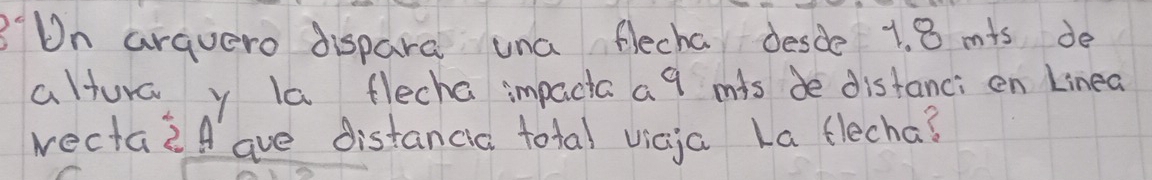 3° Un arquero dispara una flecha desde 1.8 mts de
altura y la flecha impacta a 9 mts de distanci en Linea
recta ¿A que distancia total viaja La flecha?